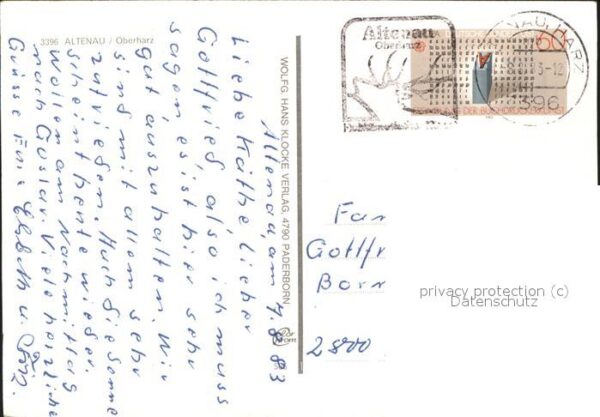 3396 ALTENAU / Oberharz
Altenau, am 7.8.83
Liebe Käthe lieber
Gottfried, also ich muss
sagen, es ist hier sehr
gut auszuhalten. Wir
sind mit allem sehr
zufrieden. Auch die Sonne
scheint heute wieder.
Wollen am Nachmittag
nach Goslar. Viele herzliche
Grüsse Eure Elsbeth u.
WOLFG. HANS KLOCKE VERLAG, 4790 PADERBORN
Altenau
Oberharz
60
HARZ
396
Fam
Gottfr
Born
2800
privacy protection (c)
Datenschutz